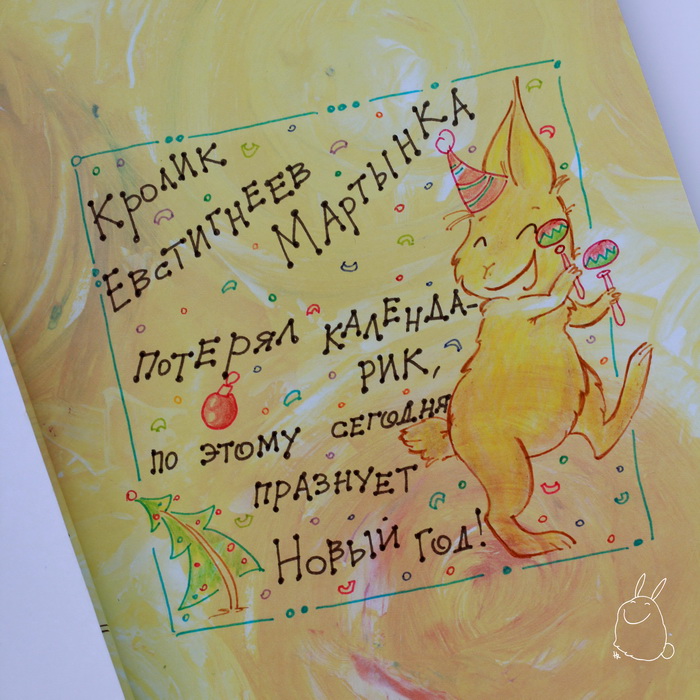 Кролик
Евстигнеев
Мартынка
потерял календа-
рик,
по этому сегодня
празнует
Новый год!